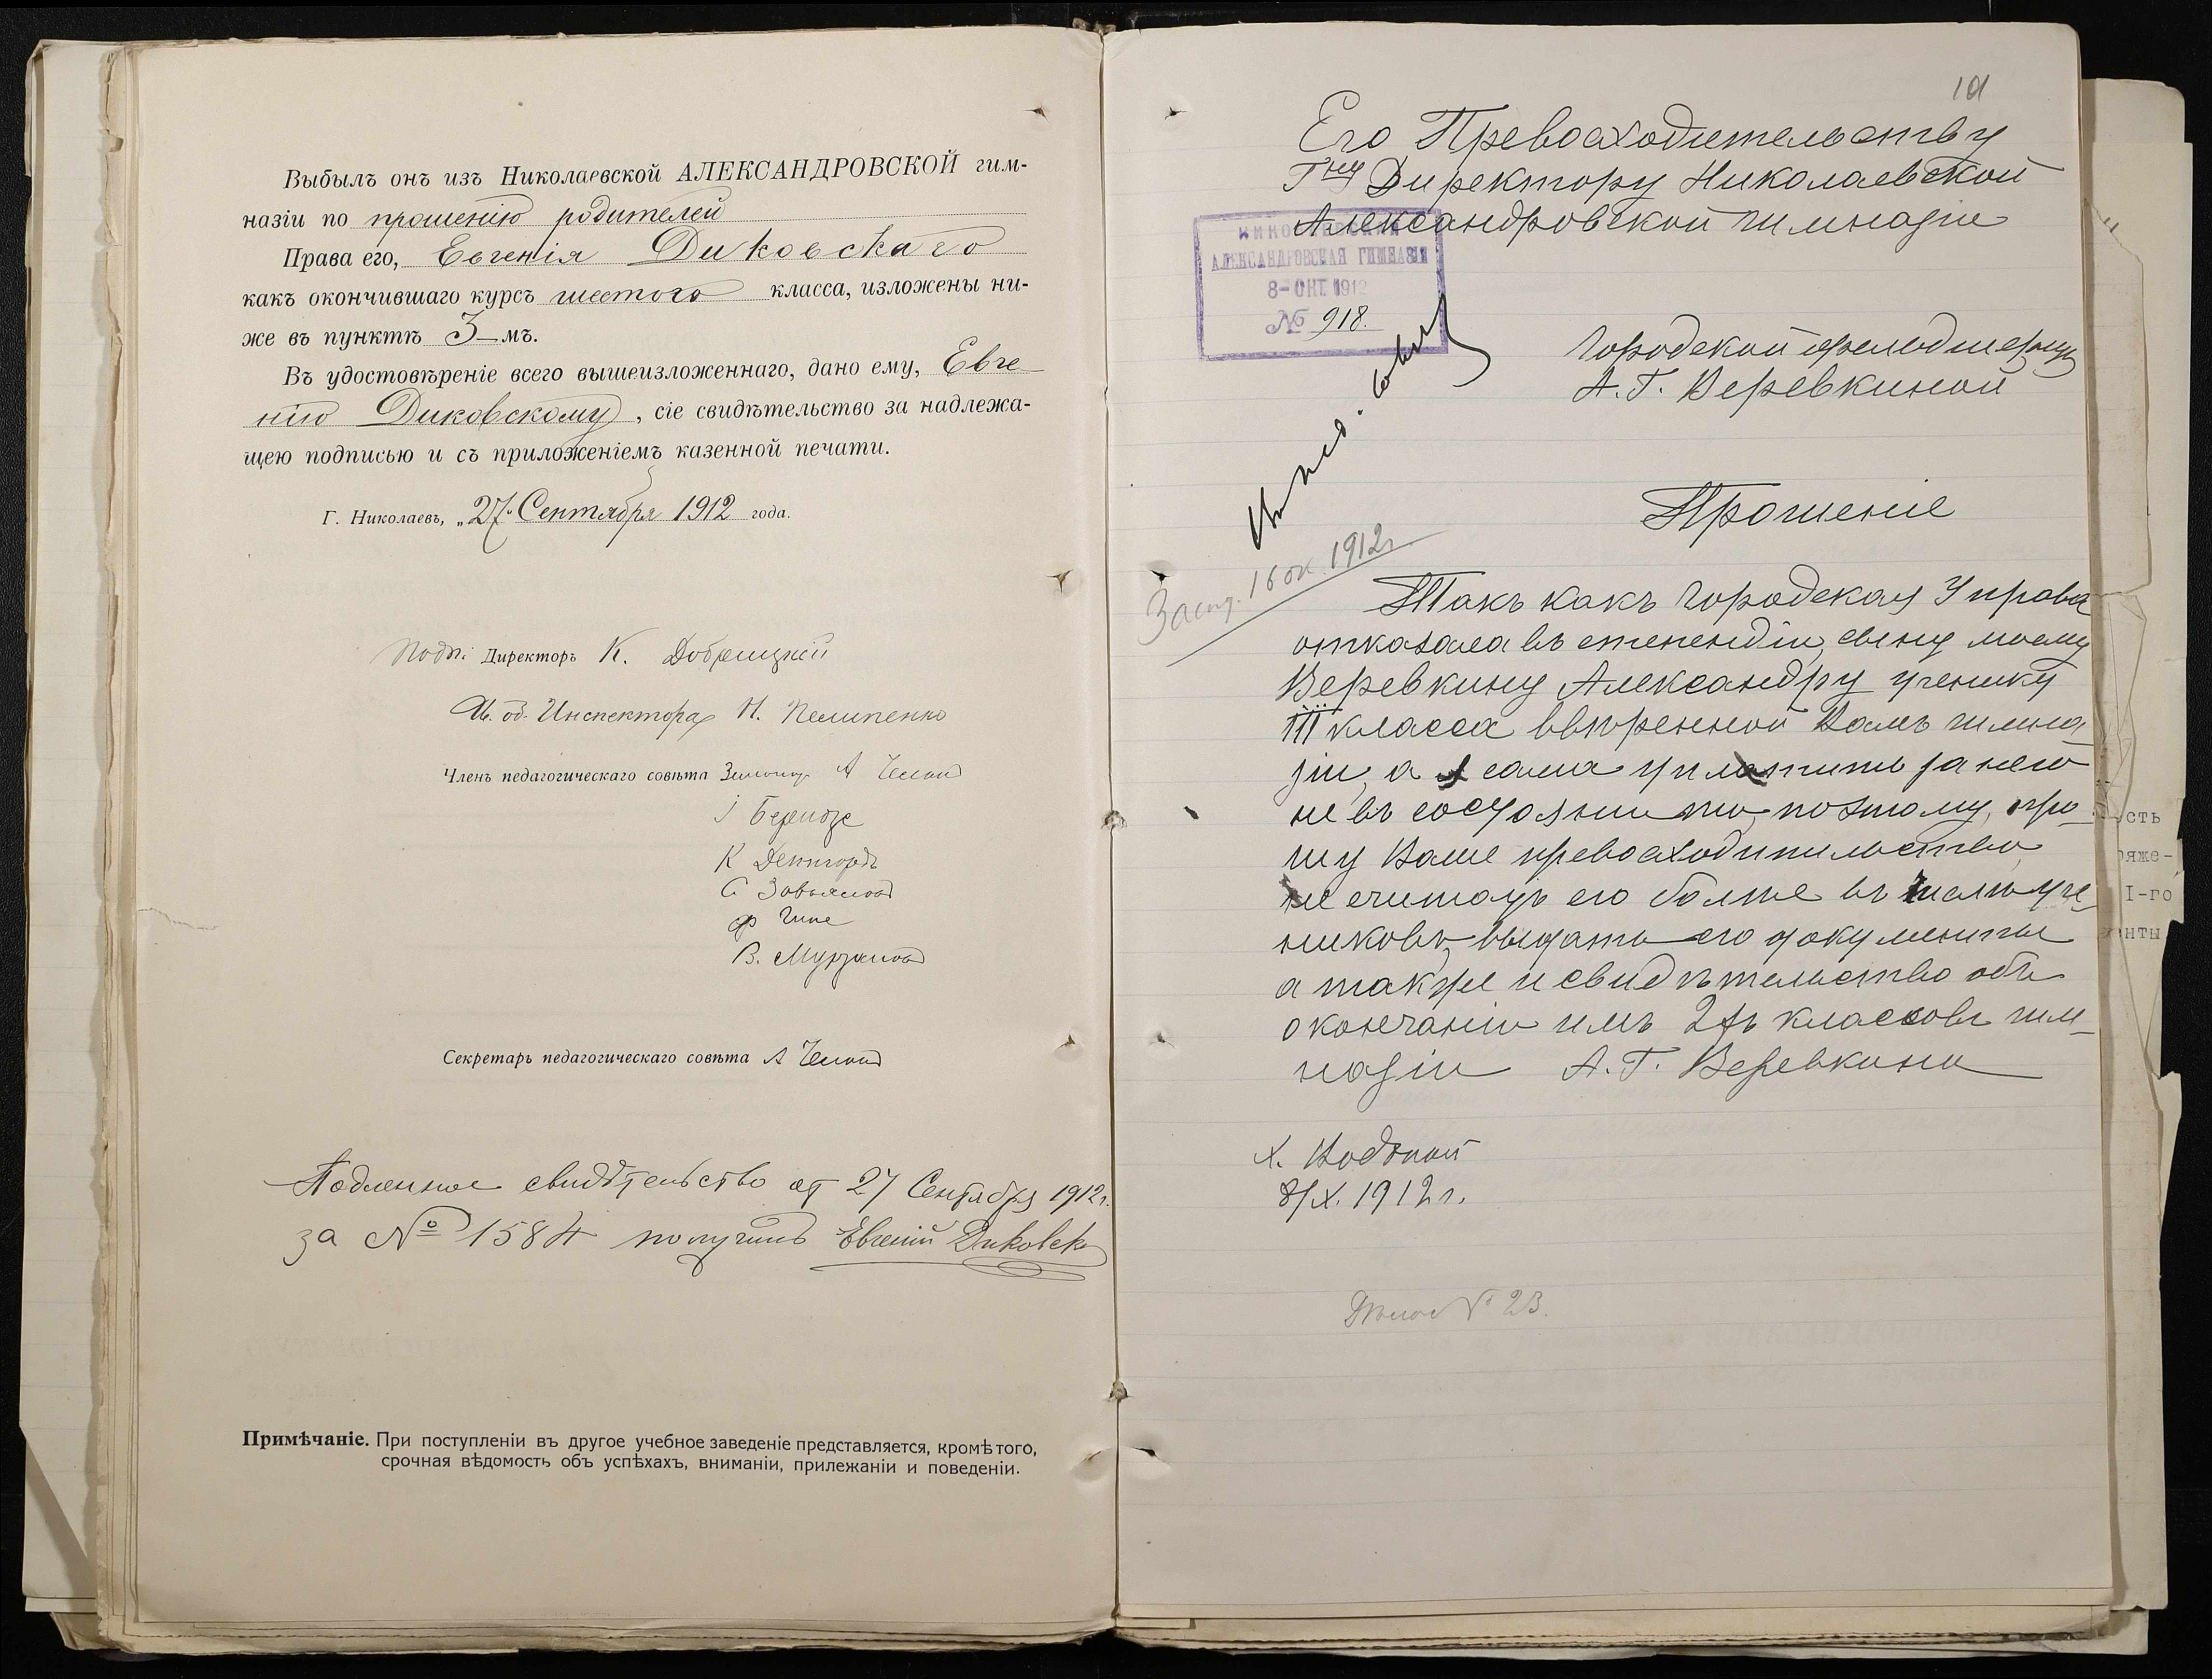 Выбылъ онъ изъ Николаевской АЛЕКСАНДРОВСКОЙ гим-
назіи по прошенію родителей
Права его, Евгенія Диковскаго
какъ окончившаго курсъ шестого класса, изложены ни-
же въ пунктѣ 3-мъ.
Въ удостовѣреніе всего вышеизложеннаго, дано ему, Евге-
нію Диковскому, сіе свидѣтельство за надлежа-
щею подписью и съ приложеніемъ казенной печати.
Г. Николаевъ, „27“ Сентября 1912 года.
Директоръ К. Добрицкій
И. об. Инспектора Н. Пелипенко
Членъ педагогическаго совѣта
С Завьялов
В. Мурзанов
Секретарь педагогическаго совѣта
Подленное свидѣтельство от 27 Сентября 1912 г.
за № 1584 получилъ Евгеній Диковск
Примѣчаніе. При поступленіи въ другое учебное заведеніе представляется, кромѣ того,
срочная вѣдомость объ успѣхахъ, вниманіи, прилежаніи и поведеніи.
101
Его Превосходительству
Гну Директору Николаевской
Александровской гимназіи
НИКОЛАЕВСКАЯ
АЛЕКСАНДРОВСКАЯ ГИМНАЗІЯ
8-ОКТ 1912
№ 918.
Городской фельдшерицы
А. Г. Веревкиной
Прошеніе
16 ок. 1912 г.
Такъ какъ городская Управа
отказала въ стипендіи, сыну моему
Веревкину Александру ученику
III класса ввѣренной Вамъ гимна
зіи, а я сама уплатить за него
не въ состояніи то, поэтому, про-
шу Ваше превосходительство
не считать его болѣе въ числѣ уче-
никовъ, выдать его документы
а также и свидѣтельство объ
окончаніи имъ 2хъ классовъ гим-
назіи А. Г. Веревкина
х. Водяной
8/X. 1912 г.
№ 23.
сть
ряже-
I-го
нты